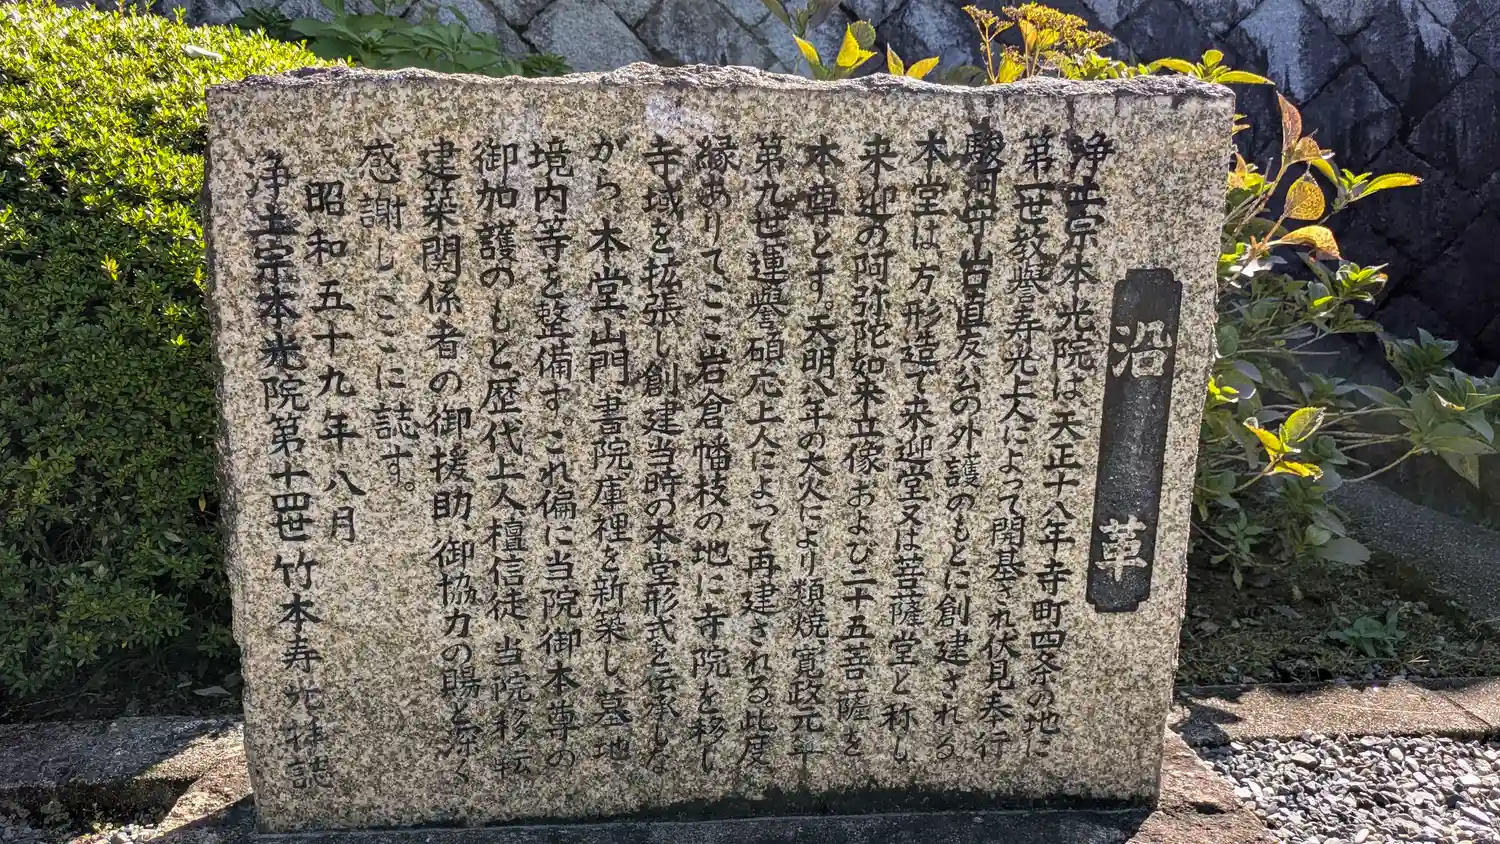 沿革
浄土宗本光院は、天正十八年寺町四条の地に
第一世教譽寿光上人によって開基され伏見奉行
駿河守山口直友公の外護のもとに創建される
本堂は方形造で来迎堂又は菩薩堂と称し
来迎の阿弥陀如来立像および二十五菩薩を
本尊とす。天明八年の大火により類焼、寛政元年
第九世運譽碩応上人によって再建される。此度
縁ありてここ岩倉幡枝の地に寺院を移し
寺域を拡張し創建当時の本堂形式を伝承しな
がら本堂山門書院庫裡を新築し、墓地
境内等を整備す。これ偏に当院御本尊の
御加護のもと歴代上人檀信徒、当院移転
建築関係者の御援助、御協力の賜と深く
感謝しここに誌す。
昭和五十九年八月
浄土宗本光院第十四世竹本寿光拝誌